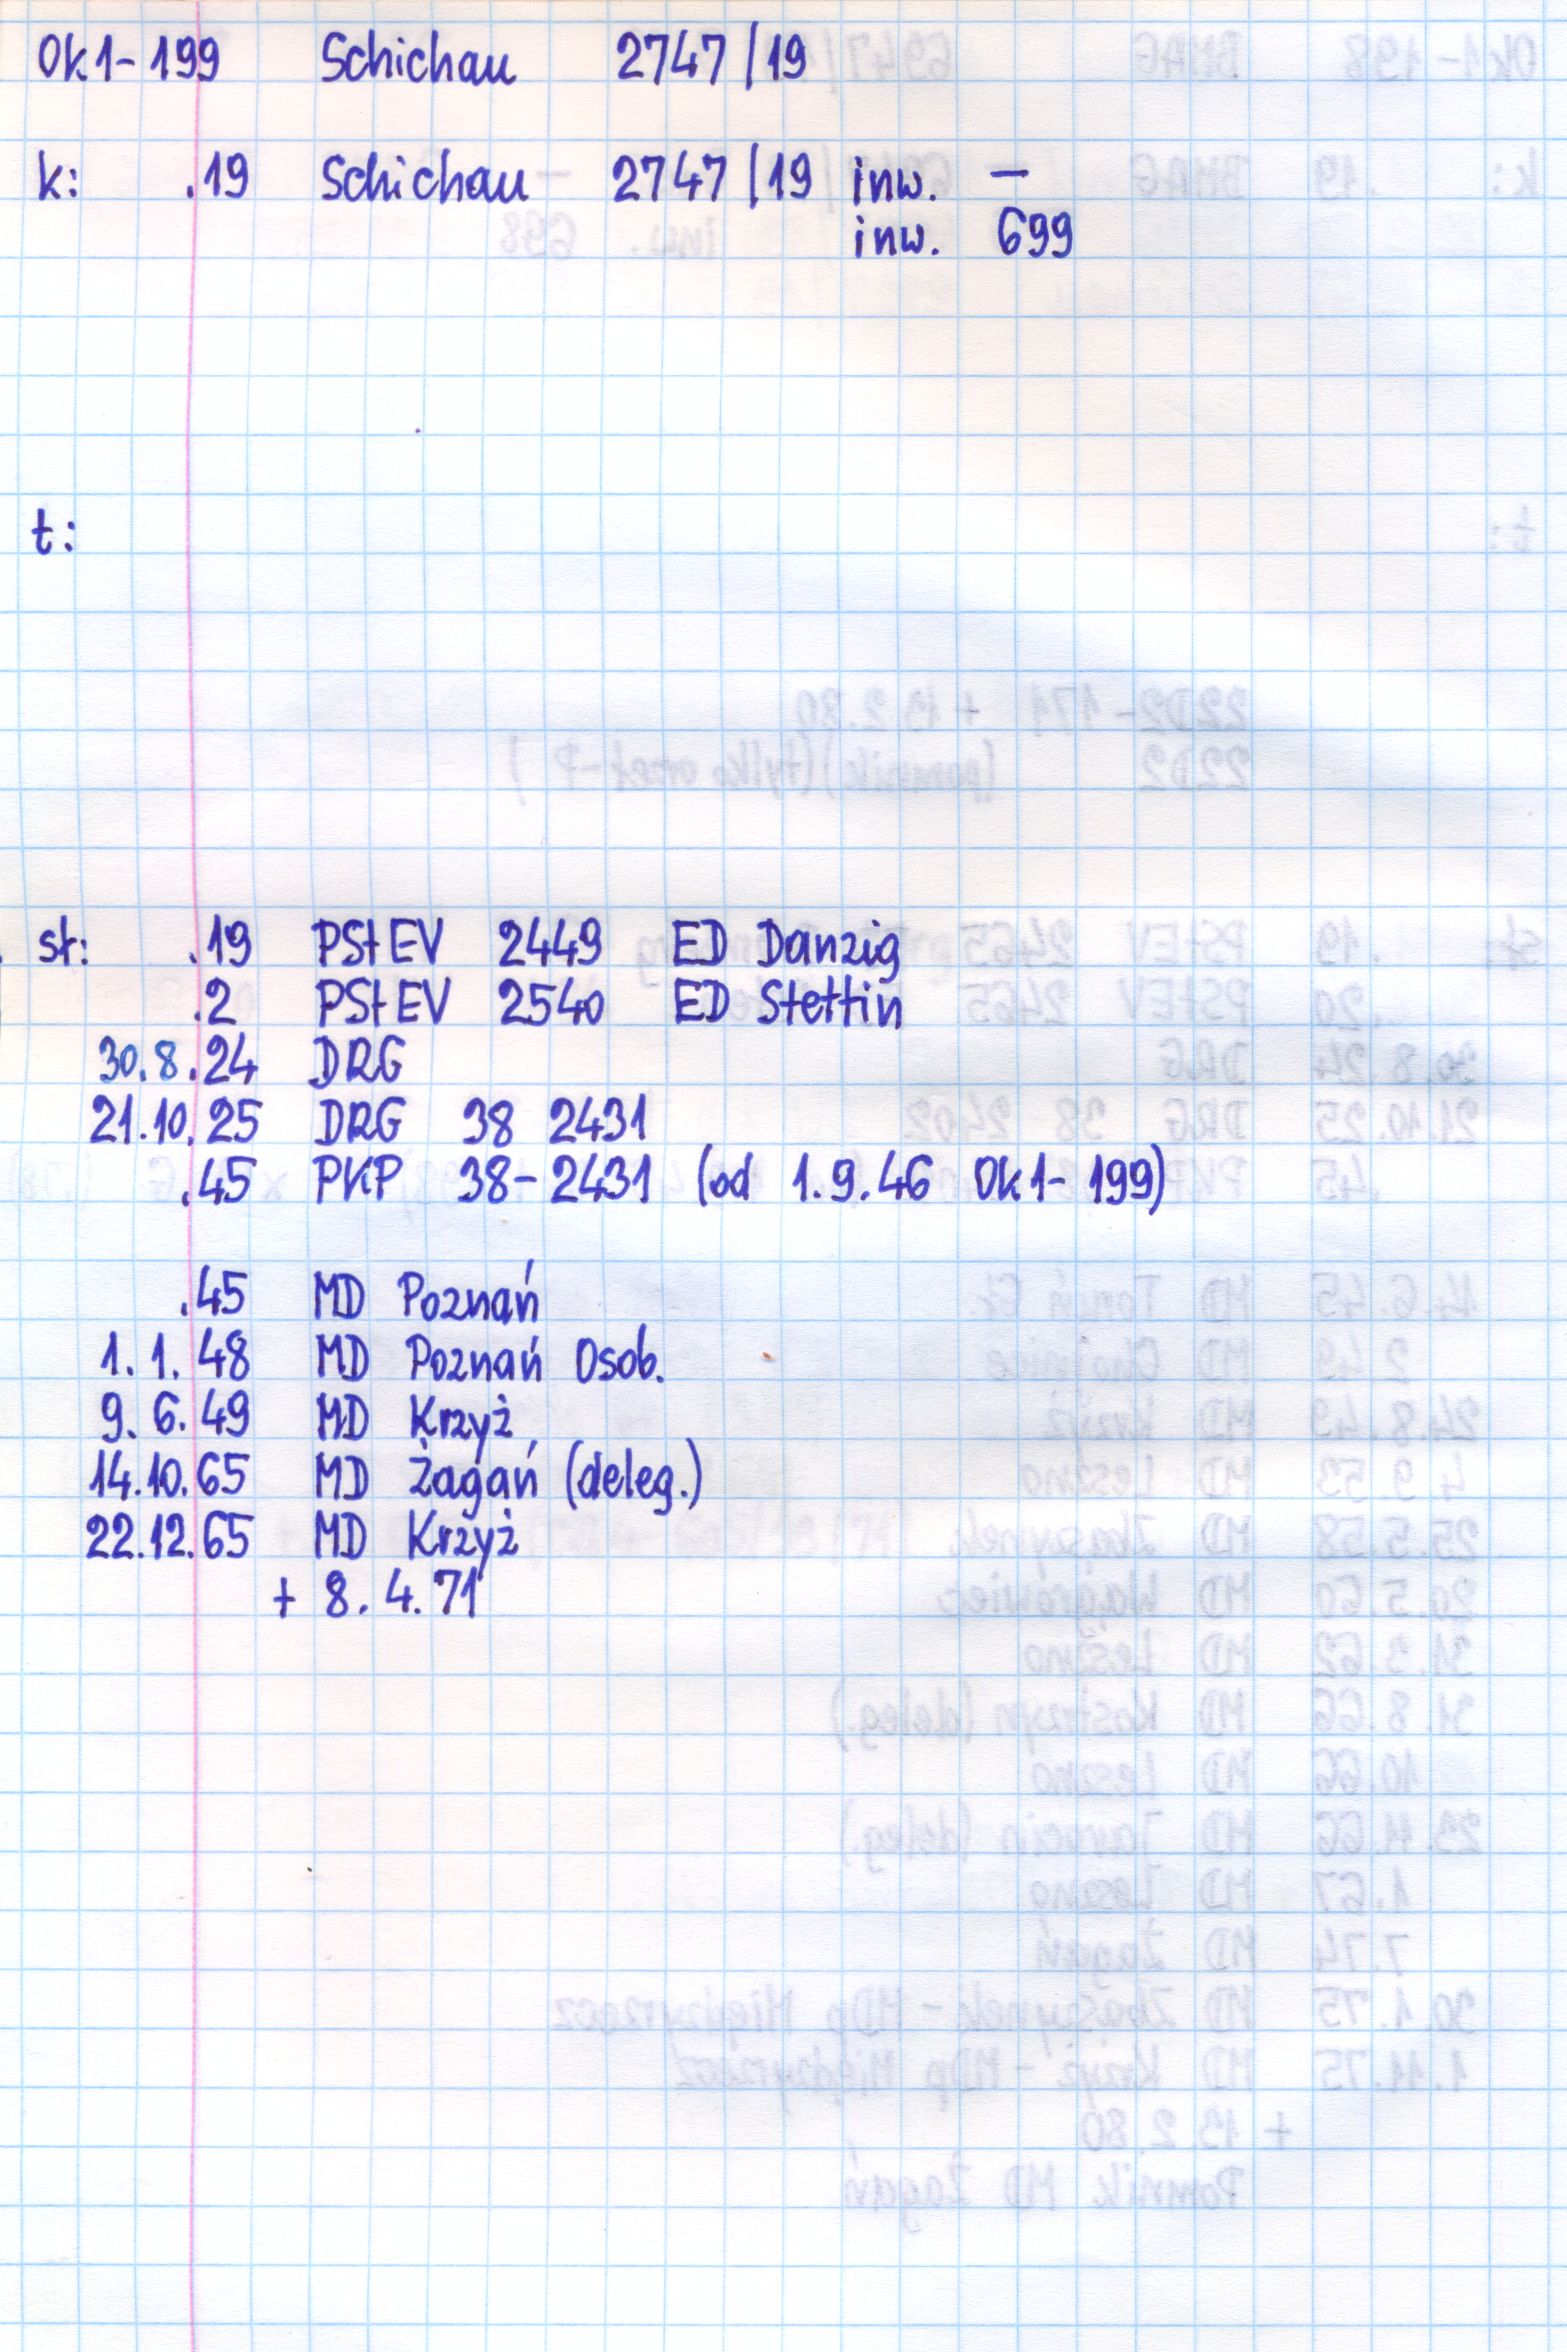 Ok1-199 Schichau 2747/19
k: .19 Schichau 2747/19 inw. —
inw. 699
t:
st: .19 PStEV 2449 ED Danzig
.2 PStEV 2540 ED Stettin
30.8.24 DRG
21.10.25 DRG 38 2431
.45 PKP 38-2431 (od 1.9.46 Ok1-199)
.45 MD Poznań
1.1.48 MD Poznań Osob.
9.6.49 MD Krzyż
14.10.65 MD Żagań (deleg.)
22.12.65 MD Krzyż
+ 8.4.71